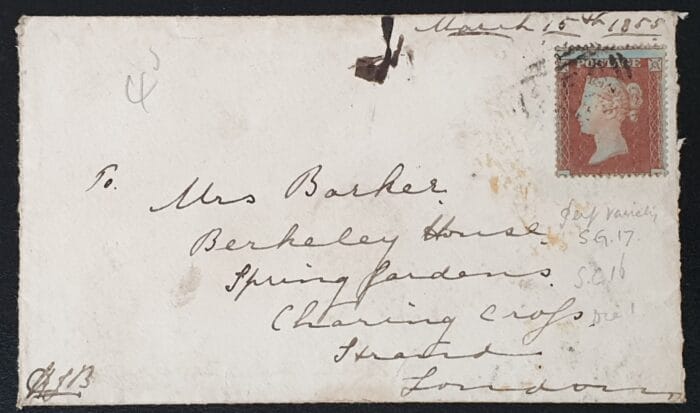 March 15th 1855
POSTAGE
To.
Mrs Barker.
Berkeley House.
Spring Gardens.
Charing Cross.
Strand
London
perf variety
S.G. 17.
S.C 16
Die 1